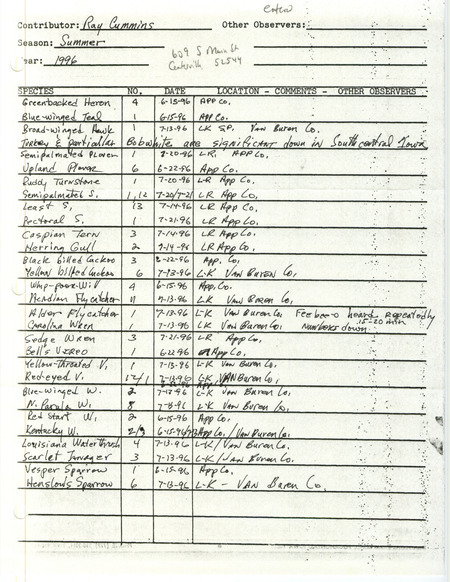 entered
Contributor: Ray Cummins Other Observers:
Season: Summer
609 S Main St
Year: 1996
Centerville 52544
SPECIES NO. DATE LOCATION - COMMENTS - OTHER OBSERVERS
Greenbacked Heron 4 6-15-96 App Co.
Blue-winged Teal 1 6-15-96 App Co.
Broad-winged Hawk 1 7-13-96 LK S.P. Van Buren Co.
Turkey & particular Bobwhite are significant down in South central Iowa
Semipalmated Plover 1 7-20-96 LR, App Co.
Upland Plover 6 6-22-96 App Co.
Ruddy Turnstone 1 7-20-96 LR App Co.
Semipalmated S. 1,12 7-20/7-21 LR App Co,
Least S. 13 7-14-96 LR App Co.
Pectoral S. 1 7-21-96 LR App Co.
Caspian Tern 3 7-14-96 LR App Co.
Herring Gull 2 7-14-96 LR App Co.
Black billed Cuckoo 3 6-22-96 App. Co,
Yellow billed Cuckoo 6 7-13-96 L-K Van Buren Co,
Whip-poor-will 4 6-15-96 App. Co.
Acadian Flycatcher 7-13-96 L-K Van Buren Co,
Alder Flycatcher 1 7-13-96 L-K Van Buren Co, Fee bee-o heard repeatedly
15-20 min
Carolina Wren 1 7-13-96 L-K Van Buren Co, Numbers down
Sedge Wren 3 7-21-96 LR App Co.
Bell's Vireo 1 6-22-96 App Co,
Yellow-Throated V. 1 7-13-96 L-K Van Buren Co.
Red-eyed V. 7-13-96 LK Van Buren Co,
Blue-winged W. 2 7-13-96 L-K Van Buren Co.
N. Parula W. 8 7-13-96 L-K Van Buren Co.
Red Start W. 2 6-15-96 App Co.
Kentucky W. 2/3 6-15-96/7-13 App Co, / Van Buren Co.
Louisiana Water Thrush 4 7-13-96 L-K / Van Buren Co.
Scarlet Tanager 3 7-13-96 L-K / Van Buren Co,
Vesper Sparrow 1 6-15-96 App Co.
Henslow's Sparrow 6 7-13-96 L-K - Van Buren Co,